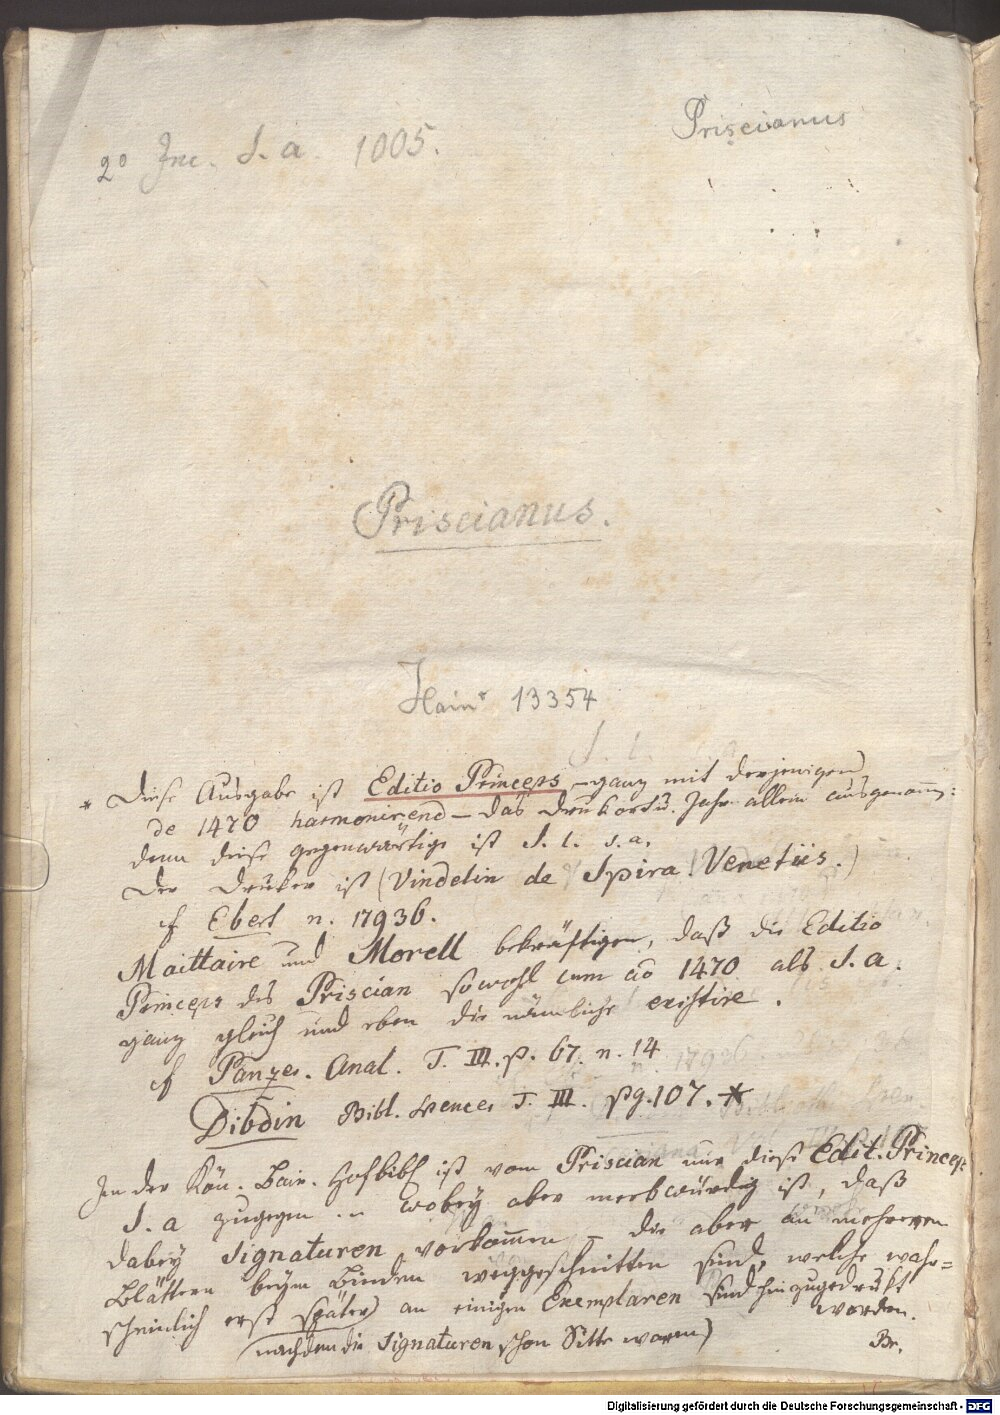 Priscianus
2° Inc. s. a. 1005.
Priscianus.
Hain* 13354
* Diese Ausgabe ist Editio Princeps – ganz mit derjenigen
de 1470 harmonirend – das Druckort u. Jahr allein ausgenom:
denn diese gegenwärtige ist S. l. s. a.
Der Druker ist (Vindelin de Spira Venetiis.)
cf Ebert n. 17936.
Maittaire und Morell bekräftigen, daß die Editio
Princeps des Priscian sowohl cum ao 1470 als S. a.
ganz gleich und eben die nämliche existire.
cf Panzer. Anal. T. III. p. 67. n. 14
Dibdin Bibl. Spencer T. III. pg. 107. *
In der Kön. Bair. Hofbibl ist vom Priscian nur diese Edit. Princeps
S. a zugegen wobey aber merkwürdig ist, daß
dabey Signaturen vorkommen – die aber an mehreren
Blättern beym Binden weggeschnitten sind, welche wahr=
scheinlich erst später an einigen Exemplaren sind hinzugedrukt
worden.
(nachdem die Signaturen schon Sitte waren)
Br.
Digitalisierung gefördert durch die Deutsche Forschungsgemeinschaft - DFG